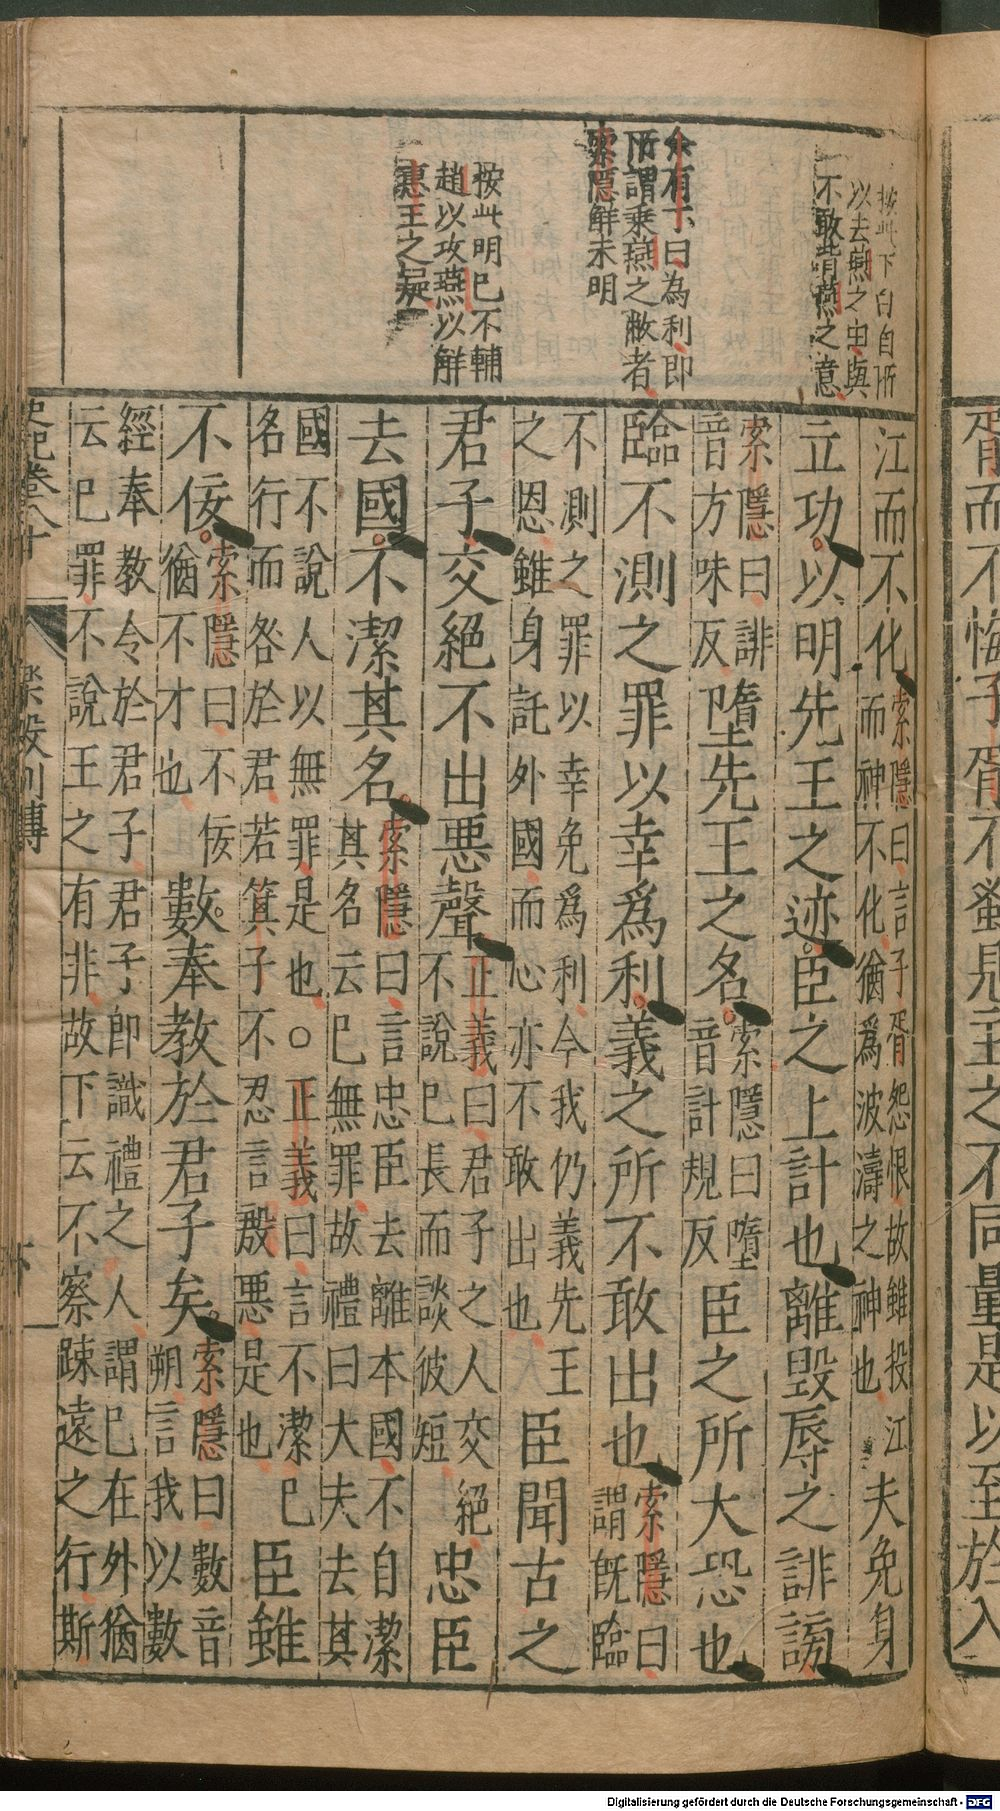 按此下白自所
以去燕之由與
不敢背燕之意
余有丁曰為利即
所謂乘燕之敝者
索隱解未明
按此明已不輔
趙以攻燕以解
惠王之疑
江而不化索隱曰言子胥怨恨故雖投江
而神不化猶爲波濤之神也夫免身
立功以明先王之迹臣之上計也離毀辱之誹謗
索隱曰誹
音方味反墮先王之名索隱曰墮
音計規反臣之所大恐也
臨不測之罪以幸爲利義之所不敢出也索隱曰
謂旣臨
不測之罪以幸免爲利今我仍義先王
之恩雖身託外國而心亦不敢出也臣聞古之
君子交絕不出惡聲正義曰君子之人交絕
不說己長而談彼短忠臣
去國不潔其名索隱曰言忠臣去離本國不自潔
其名云己無罪故禮曰大夫去其
國不說人以無罪是也○正義曰言不潔己
名行而咎於君若箕子不忍言殷惡是也臣雖
不佞索隱曰不佞
猶不才也數奉教於君子矣索隱曰數音
朔言我以數
經奉教令於君子君子即識禮之人謂己在外猶
云己罪不說王之有非故下云不察疎遠之行斯
史記卷八十
樂毅列傳
胥而不悔子胥不蚤見主之不同量是以至於入
Digitalisierung gefördert durch die Deutsche Forschungsgemeinschaft - DFG